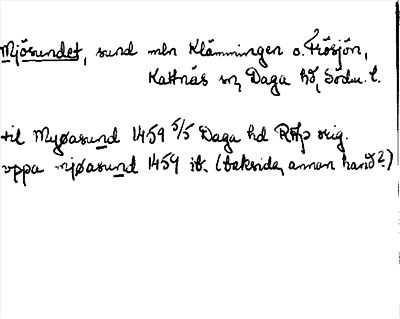 Mjösundet, sund mln Klämmingen o. Frösjön,
Kattnäs sn, Daga hd, Södm. l.
til Myøasund 1459 5/5 Daga hd RAp orig.
vppa mjøasund 1459 ib. (baksida, annan hand?)